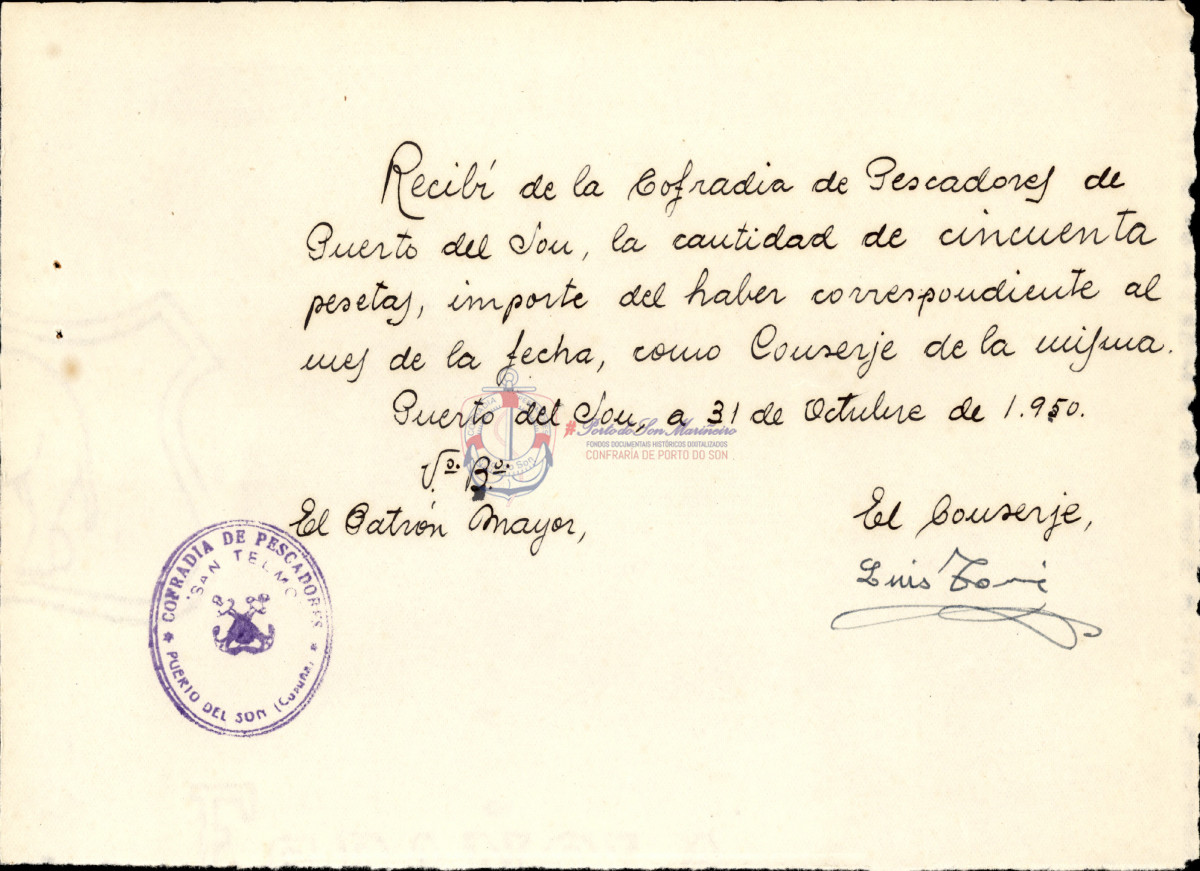 Recibí de la Cofradia de Pescadores de
Puerto del Son, la cantidad de cincuenta
pesetas, importe del haber correspondiente al
mes de la fecha, como Conserje de la misma.
Puerto del Son, a 31 de Octubre de 1.950.
#Porto do Son Mariñeiro
FONDOS DOCUMENTAIS HISTÓRICOS DIXITALIZADOS
CONFRARÍA DE PORTO DO SON
Vº. Bº.
El Patrón Mayor,
El Conserje,
Luis
COFRADIA DE PESCADORES
"SAN TELMO"
PUERTO DEL SON (CORUÑA)